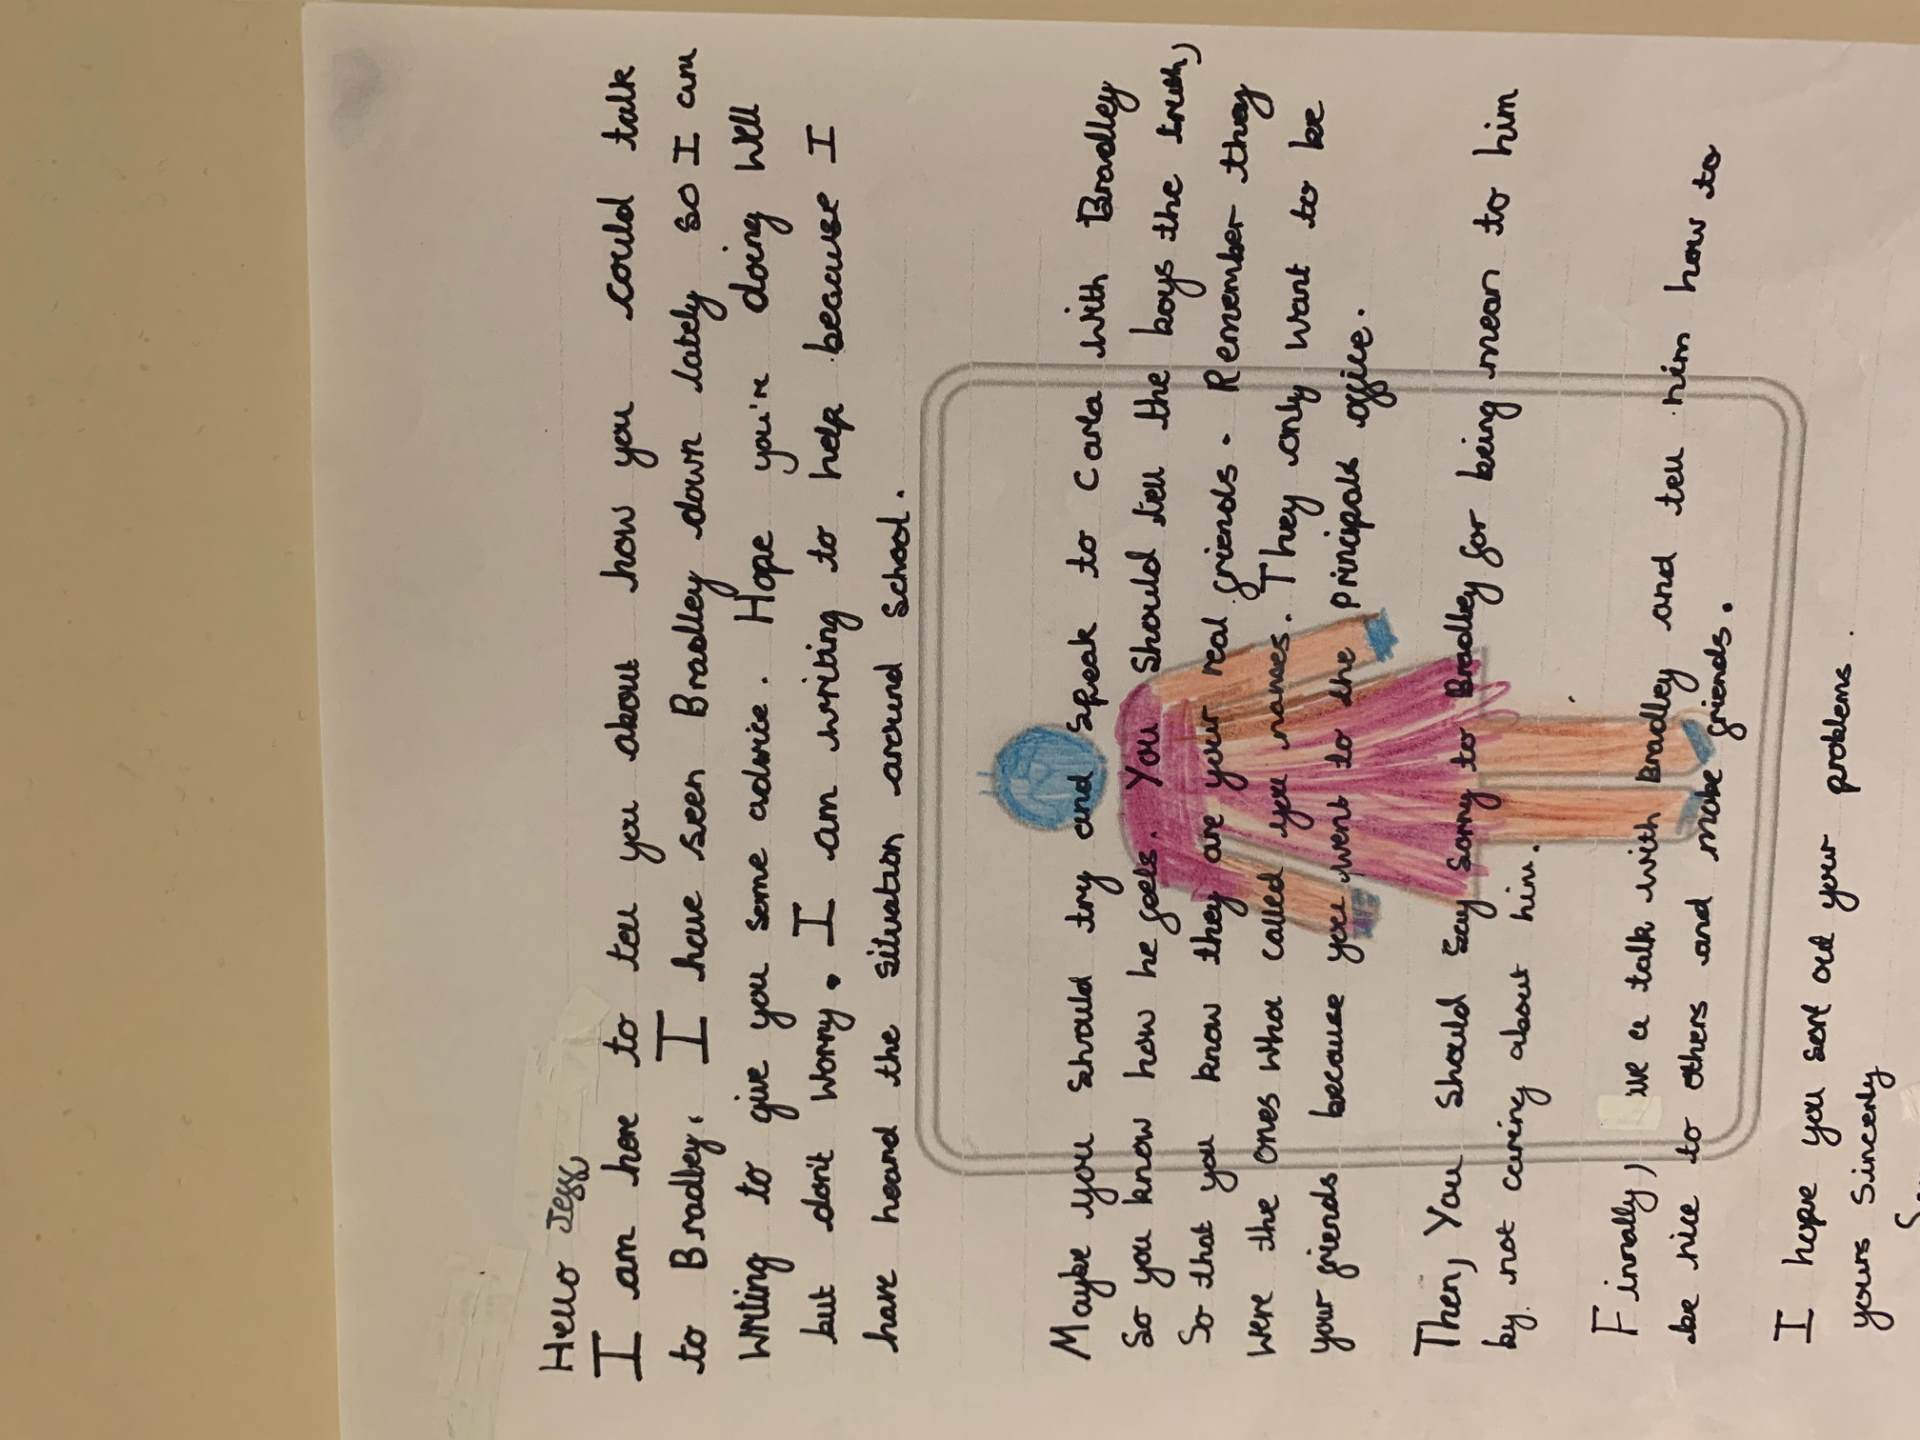 Hello Jeff
I am here to tell you about how you could talk
to Bradley. I have seen Bradley down lately so I am
writing to give you some advice. Hope you're doing well
but don't worry. I am writing to help because I
have heard the situation around school.
Maybe you should try and speak to Carla with Bradley
So you know how he feels. You should tell the boys the truth,
So that you know they are your real friends. Remember they
were the ones who called you names. They only want to be
your friends because you went to the principals office.
Then, You should say sorry to Bradley for being mean to him
by not caring about him.
Finnally, talk with Bradley and tell him how to
be nice to others and make friends.
I hope you sort out your problems.
yours sincerly